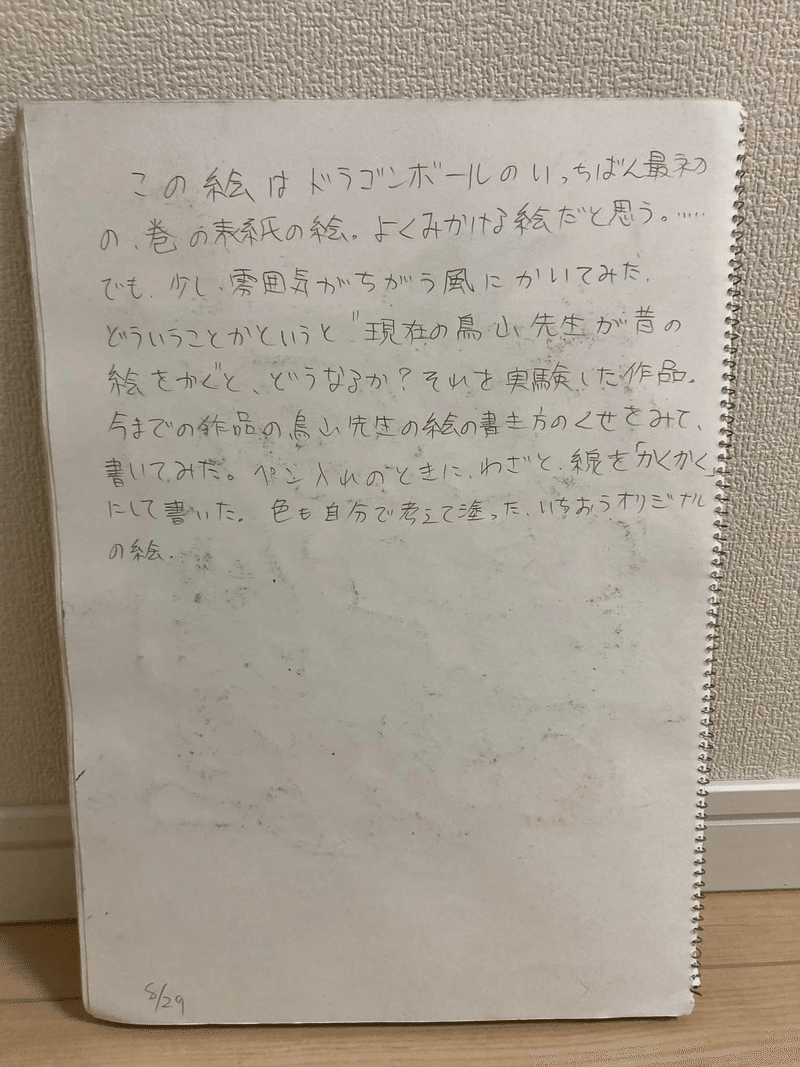 この絵はドラゴンボールのいっちばん最初
の、巻の表紙の絵。よくみかける絵だと思う。……
でも、少し、雰囲気がちがう風にかいてみた。
どういうことかというと"現在の鳥山先生が昔の
絵をかくと、どうなるか？それを実験した作品。
今までの作品の鳥山先生の絵の書き方のくせをみて、
書いてみた。ペン入れのときに、わざと、線を「かくかく」
にして書いた。色も自分で考えて塗った、いちおうオリジナル
の絵。
8/29